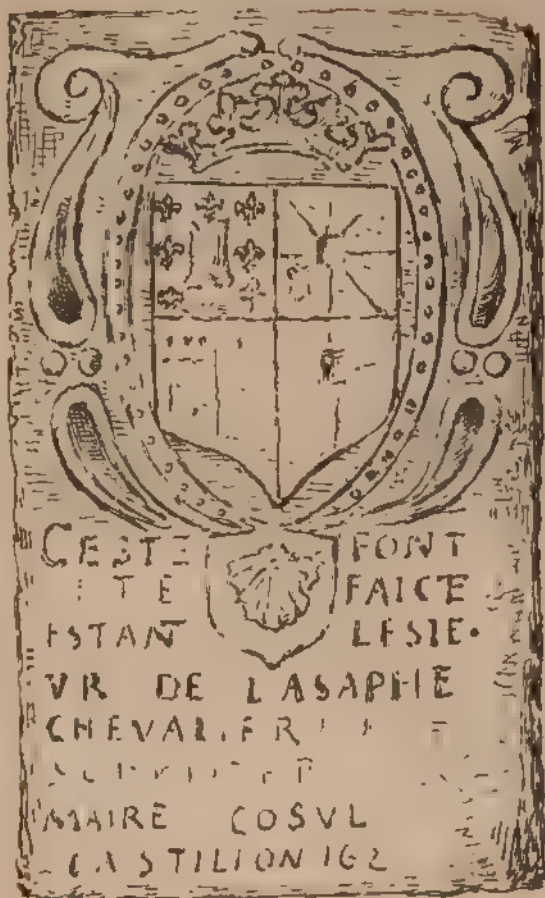 CESTE FONT
ITE FAICE
ESTANT LESIE·
VR DE LASAPHE
CHEVALIER
MAIRE COSVL
CASTILION 162